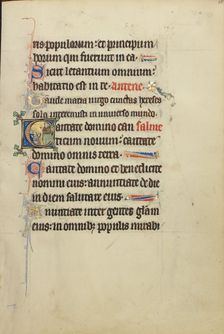 ris populorum: et principium
horum qui fuerunt in ea:
Sicut letantium omnium:
habitatio est in te. Antene
Gaude maria virgo cunctas hereses
sola interemisti in universo mundo.
Cantate domino can salme
ticum novum: cantate
domino omnis terra.
Cantate domino et benedicite
nomini eius: annuntiate de die
in diem salutare eius.
Annuntiate inter gentes glam
eius: in omnibz populis mirabi